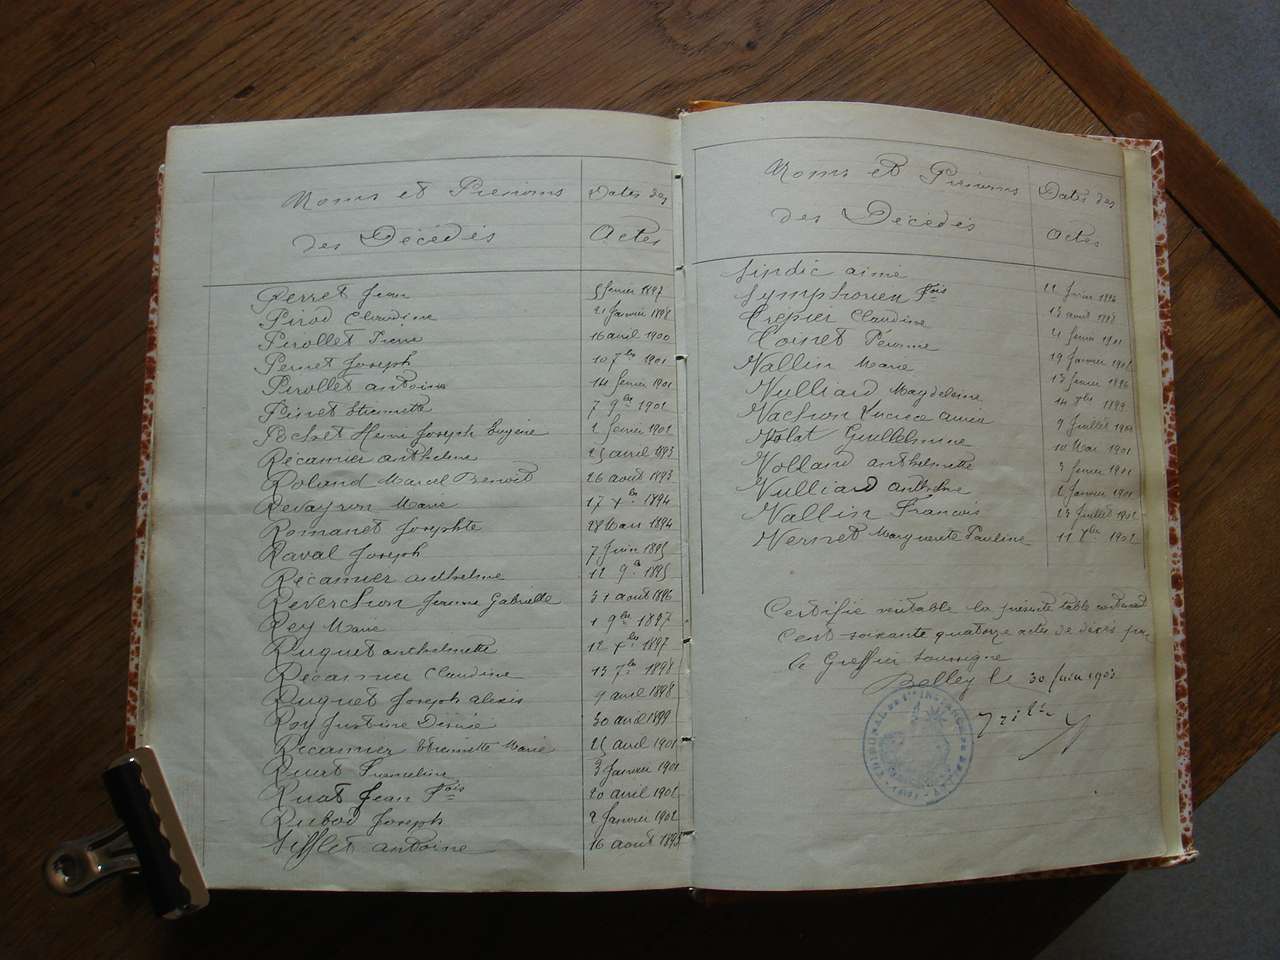 Noms et Prénoms Dates des
des Décédés Actes
Perret Jean 5 février 1897
Pirod Claudine 21 Janvier 1898
Pirollet Pierre 16 avril 1900
Pernet Joseph 10 7bre 1901
Pirollet antoine 14 février 1901
Pinet Etiennette 7 9bre 1901
Pochet Henri Joseph Eugène 1 février 1902
Récamier anthelme 25 avril 1893
Roland Marcel Benoit 26 août 1893
Revayron Marie 17 xbre 1894
Romanet Josephte 28 Mars 1894
Raval Joseph 7 Juin 1895
Récamier anthelme 12 9e 1895
Reverchon Jeanne Gabrielle 31 août 1896
Rey Marie 1 9bre 1897
Ruguet anthelmette 12 xbre 1897
Récamier Claudine 13 7bre 1898
Ruguet Joseph alexis 9 avril 1898
Roy Justine Désirée 30 avril 1899
Récamier Etiennette Marie 25 avril 1901
Ruat 3 Janvier 1901
Ruat Jean fois 20 avril 1902
Rubod Joseph 2 Janvier 1902
Sifflet antoine 16 août 1893
Noms et Prénoms Dates des
des Décédés Actes
Sindic aimé 11 février 1894
Symphorien fois 13 avril 1898
Crépier Claudine 21 février 1901
Cornet Péronne 19 Janvier 1902
Vallin Marie 13 février 1896
Vulliard Magdeleine 14 1899
Vachon Lucrece aimée 9 Juillet 1901
Volat Guillelmine 10 Mai 1901
Volland anthelmette 3 février 1901
Vulliard anthelme 2 Janvier 1901
Vallin François 23 Juillet 1902
Vernet Marguerite Pauline 11 xbre 1902
Certifié véritable la présente table contenant
Cent soixante quatorze actes de décès par
le Greffier soussigné
Belley le 30 Juin 1903
TRIBUNAL DE 1re INSTANCE DE BELLEY